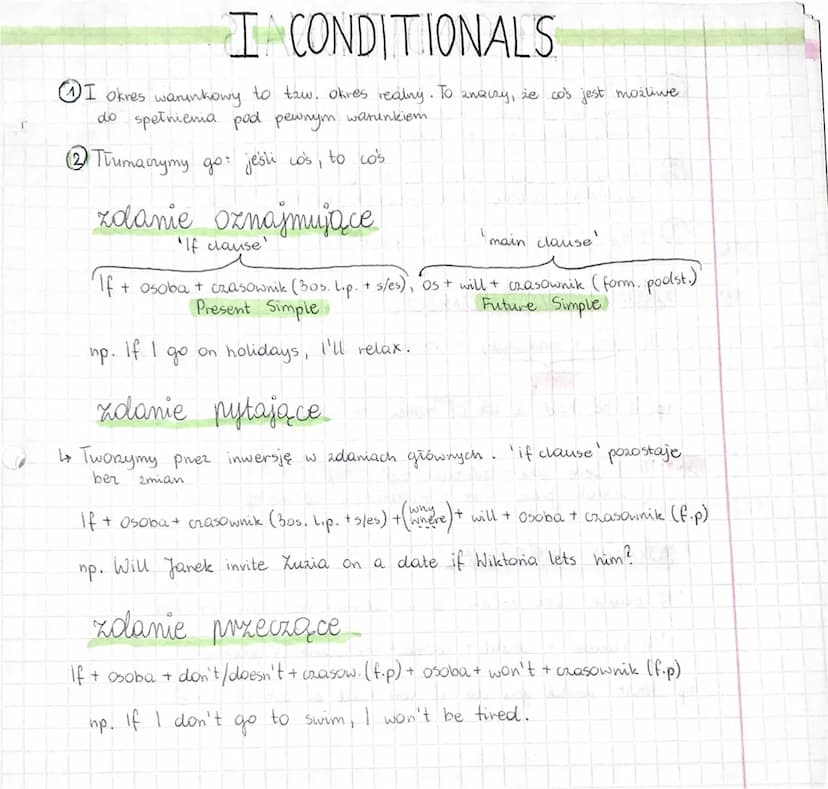 I CONDITIONALS
① I okres warunkowy to tzw. okres realny. To znaczy, że coś jest możliwe
do spełnienia pod pewnym warunkiem
② Tłumaczymy go: jeśli coś, to coś
zdanie oznajmujące
'If clause' 'main clause'
If + osoba + czasownik (3os. l.p. + s/es), os + will + czasownik (form. podst.)
Present Simple Future Simple
np. If I go on holidays, I'll relax.
zdanie pytające
↳ Tworzymy przez inwersję w zdaniach głównych. 'if clause' pozostaje
bez zmian
If + osoba + czasownik (3os. l.p. + s/es) + (why where...) + will + osoba + czasownik (f.p)
np. Will Janek invite Zuzia on a date if Wiktoria lets him?
zdanie przeczące
If + osoba + don't/doesn't + czasow. (f.p) + osoba + won't + czasownik (f.p)
np. If I don't go to swim, I won't be tired.